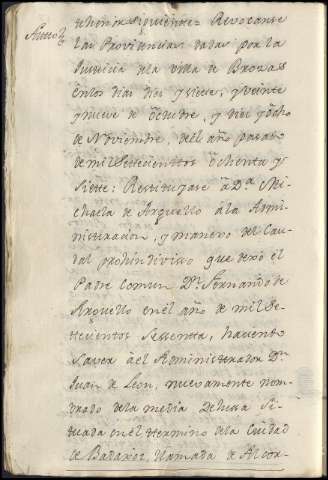 Auto
el thenor siguiente: Revocanse
las Providencias dadas por la
Justicia de la villa de Brozas
en los dias diez y siete, y veinte
y nueve de octubre, y diez y ocho
de Noviembre, del año pasado
de mil Setecienttos ochenta y
Siette: Restituyase à Dª Mi-
chaela de Arguello à la Admi-
nistrazion, y manexo del Cau-
dal prohindiviso que dexò el
Padre Comun Dn. Fernando de
Arguello en el año de mil Se-
tecientos Sessenta, haciendo
Saver à el Administrador Dn.
Juan de Leon, nuevamente nom-
brado de la media Dehesa Si-
tuada en el termino de la Ciudad
de Badaxoz, llamada de Alcor-